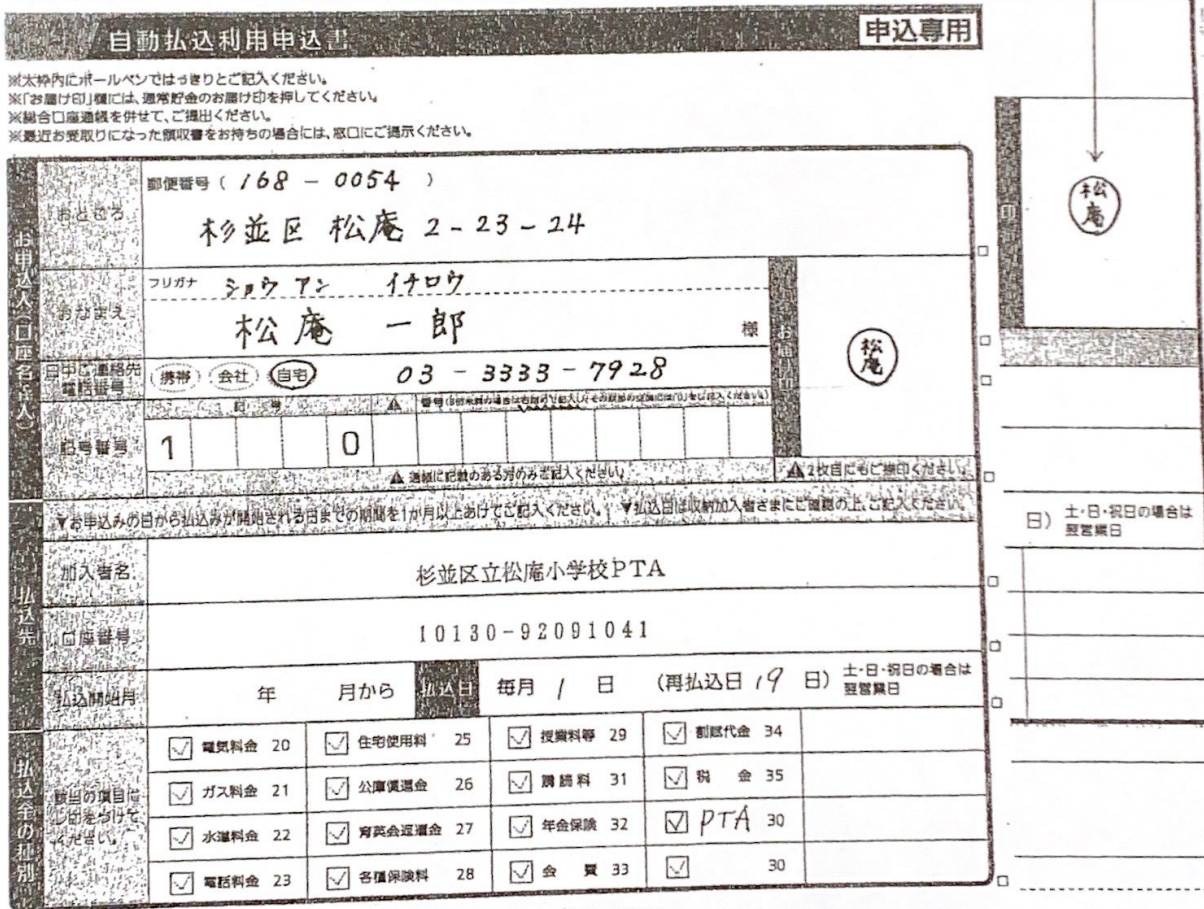 自動払込利用申込書
申込専用
※太枠内にボールペンではっきりとご記入ください。
※「お届け印」欄には、通常貯金のお届け印を押してください。
※総合口座通帳を併せて、ご提出ください。
※最近お受取りになった領収書をお持ちの場合には、窓口にご提示ください。
お申込人(口座名義人)
おところ
郵便番号 ( 168 - 0054 )
杉並区 松庵 2-23-24
おなまえ
フリガナ ショウアン イチロウ
松庵 一郎 様
お届け印
松庵
印
松庵
日中ご連絡先電話番号
携帯 会社 自宅 03-3333-7928
記号番号
記号
1 0
▲ 通帳に記載のある方のみご記入ください。
▲ 2枚目にもご捺印ください。
▼お申込みの日から払込みが開始される日までの期間を1か月以上あけてご記入ください。 ▼払込日は収納加入者さまにご確認の上、ご記入ください。
払込先
加入者名 杉並区立松庵小学校PTA
口座番号 10130-92091041
払込開始月 年 月から 払込日 毎月 1 日 (再払込日 19 日) 土・日・祝日の場合は翌営業日
日) 土・日・祝日の場合は翌営業日
払込金の種別
該当の項目にレ印をつけてください。
電気料金 20 住宅使用料 25 授業料等 29 割賦代金 34
ガス料金 21 公庫償還金 26 購読料 31 税金 35
水道料金 22 育英会返還金 27 年金保険 32 PTA 30
電話料金 23 各種保険料 28 会費 33 30